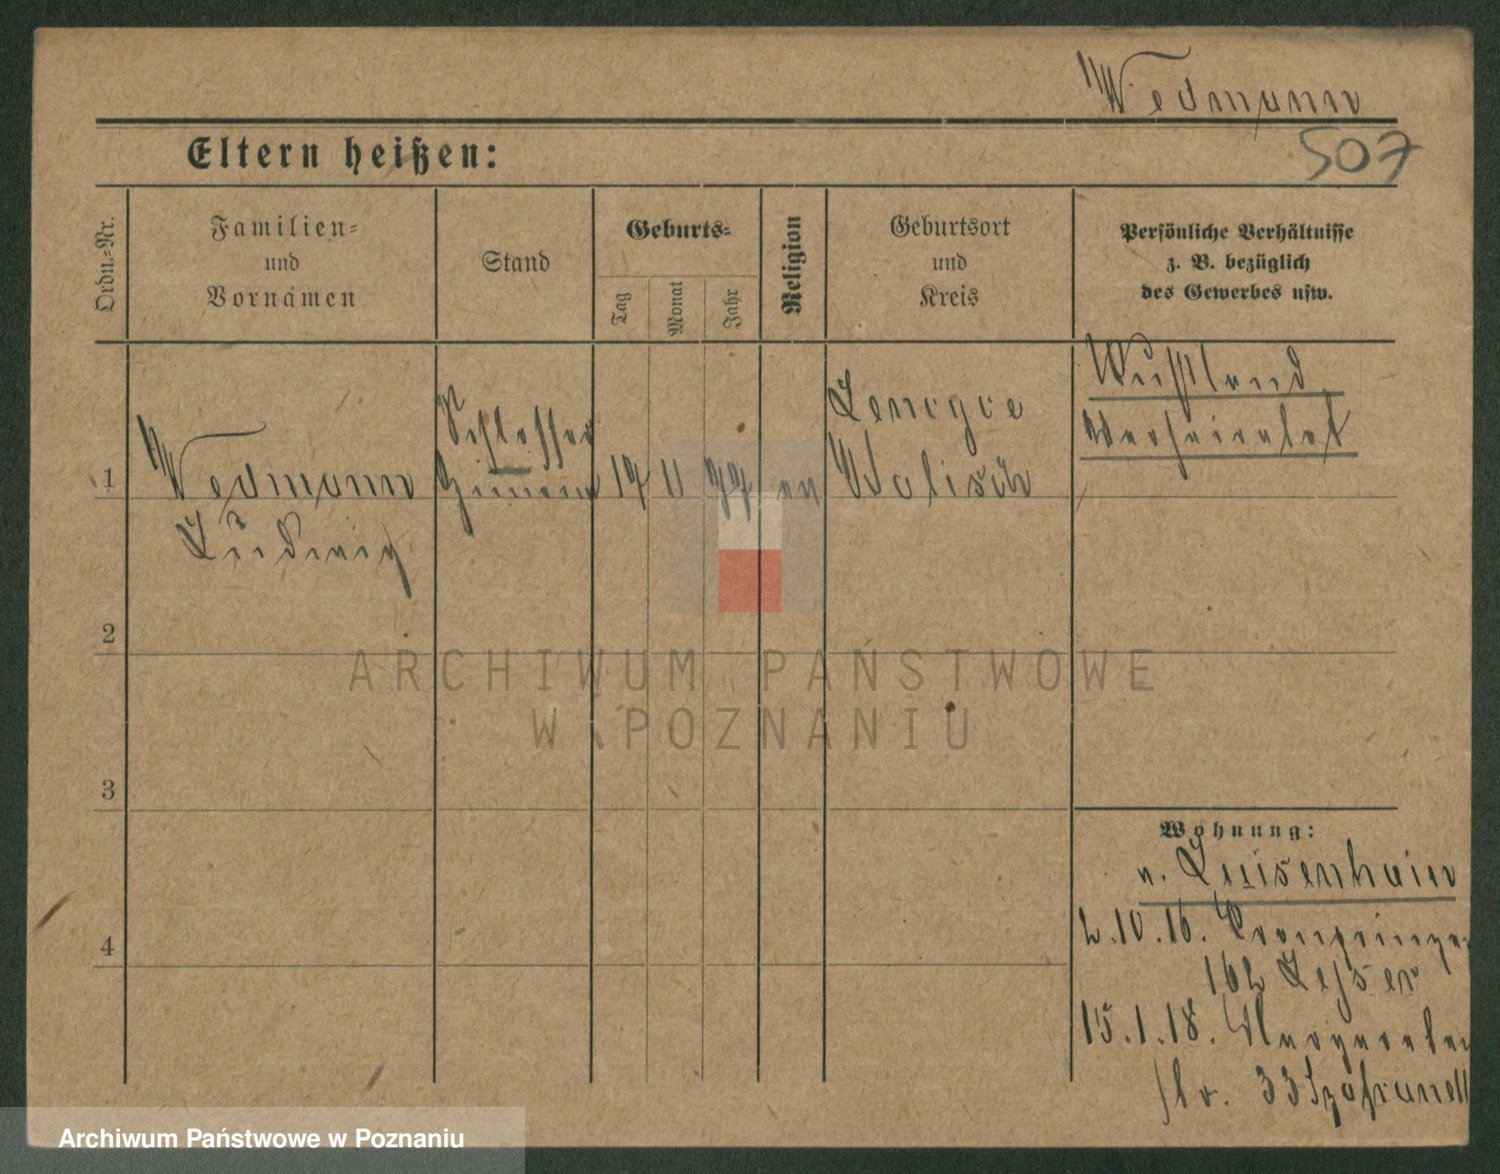 Wedmann
507
Eltern heißen:
Ordn.-Nr.
Familien-
und
Vornamen
Stand
Geburts-
Tag
Monat
Jahr
Religion
Geburtsort
und
Kreis
Persönliche Verhältnisse
z. B. bezüglich
des Gewerbes usw.
1
Wedmann
Ludwig
Schlosser
17 11 77 ev
Wolisch
Rußland
verheiratet
2
3
4
Wohnung:
v. Luisenhain
2.10.16. Kronprinze
162 Leiser
15.1.18. Margarete
str. 33
ARCHIWUM PAŃSTWOWE
W POZNANIU
Archiwum Państwowe w Poznaniu